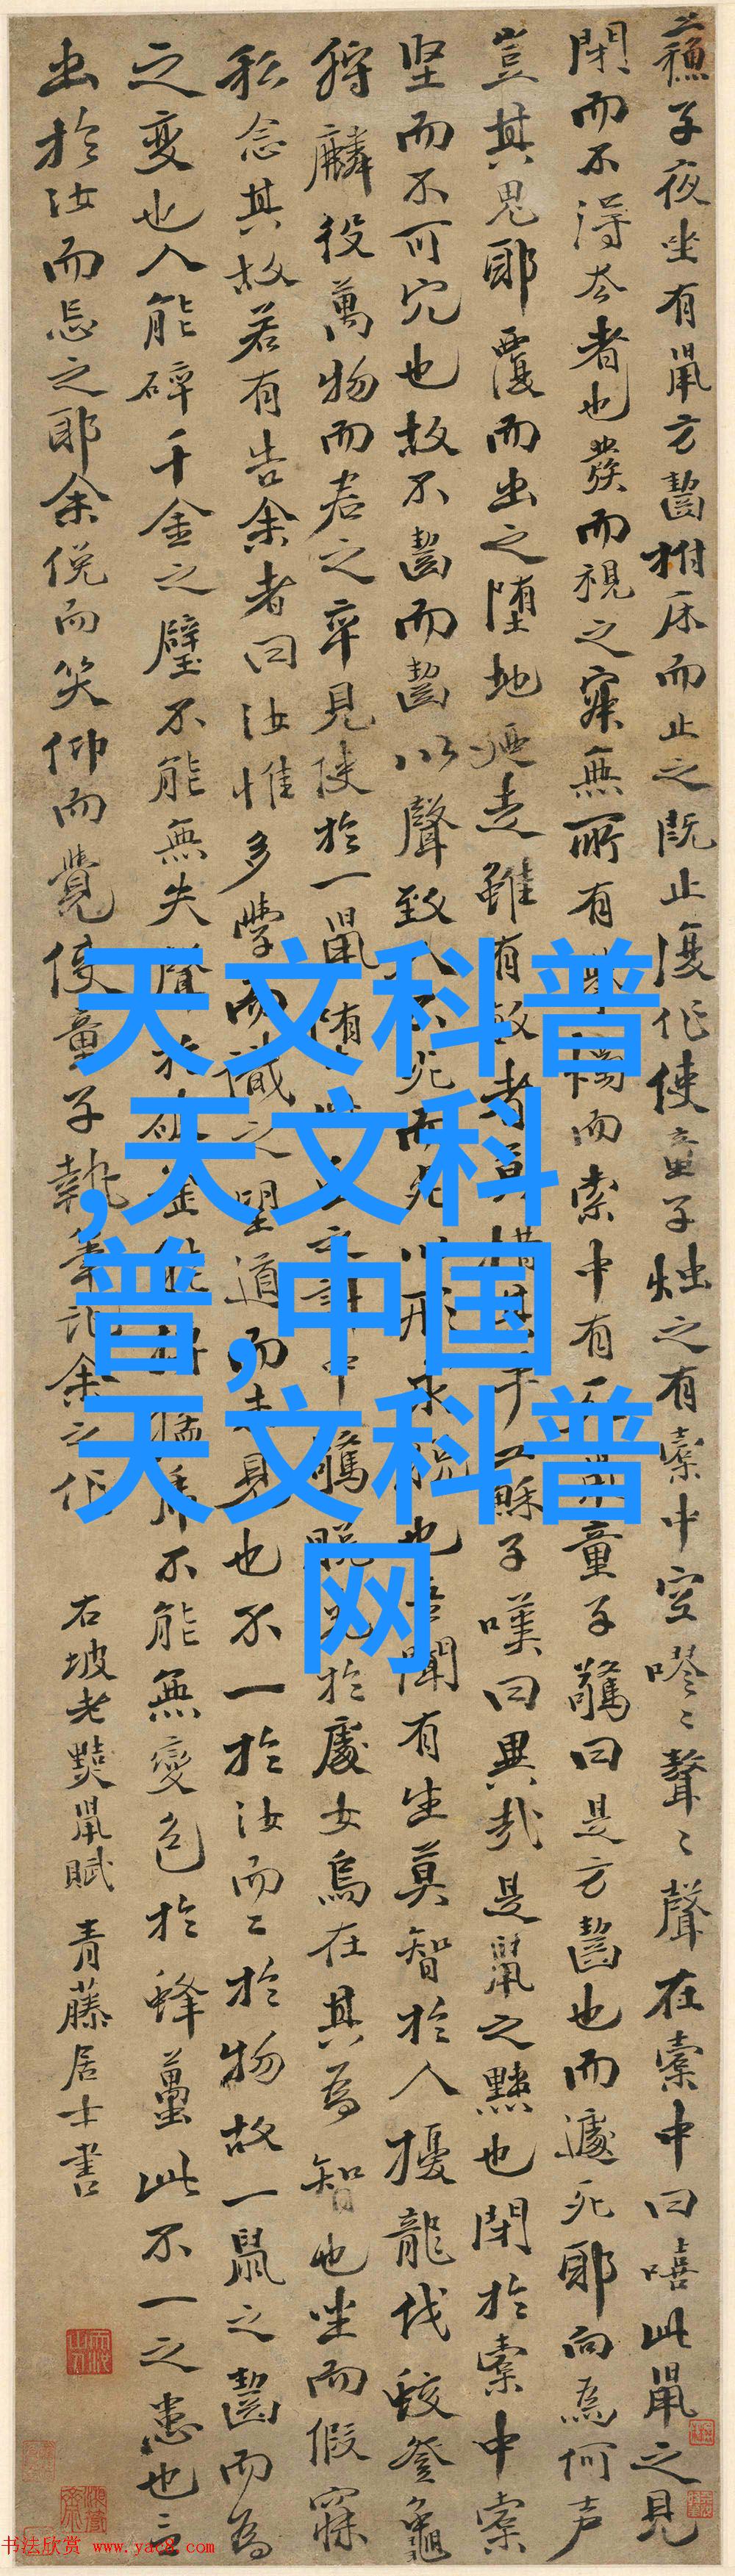 天文科普
,天文科
普,中国
天文科普
网
蘇子夜坐有鼠方齧拊床而止之既止復作使童子燭之有橐中空嘐〻聱〻聲在橐中曰嘻此鼠之見
閉而不得去者也發而視之寂無所有燭而索中有鼠童子驚曰是方齧也而遽死耶向為何声
豈其鬼耶覆而出之墮地迺走雖有敏者莫措其手蘇子嘆曰異哉是鼠之黠也閉於橐中橐
堅而不可穴也故不齧而齧以聲致人不死而死以形求脱也吾聞有生莫智於人擾龍伐蛟登龜
狩麟役萬物而君之卒見使於一鼠墮之計中驚脫兔於處女烏在其為智也坐而假寐
私念其故若有告余者曰汝惟多學而識之望道而未見也不一於汝而二於物故一鼠之齧而為
之變也人能碎千金之璧不能無失聲於破釜能搏猛虎不能無變色於蜂蠆此不一之患也言
出於汝而忘之耶余俛而笑仰而覺使童子執筆記余之作
右坡老黠鼠賦 青藤居士書
书法欣赏 www.yac8.com